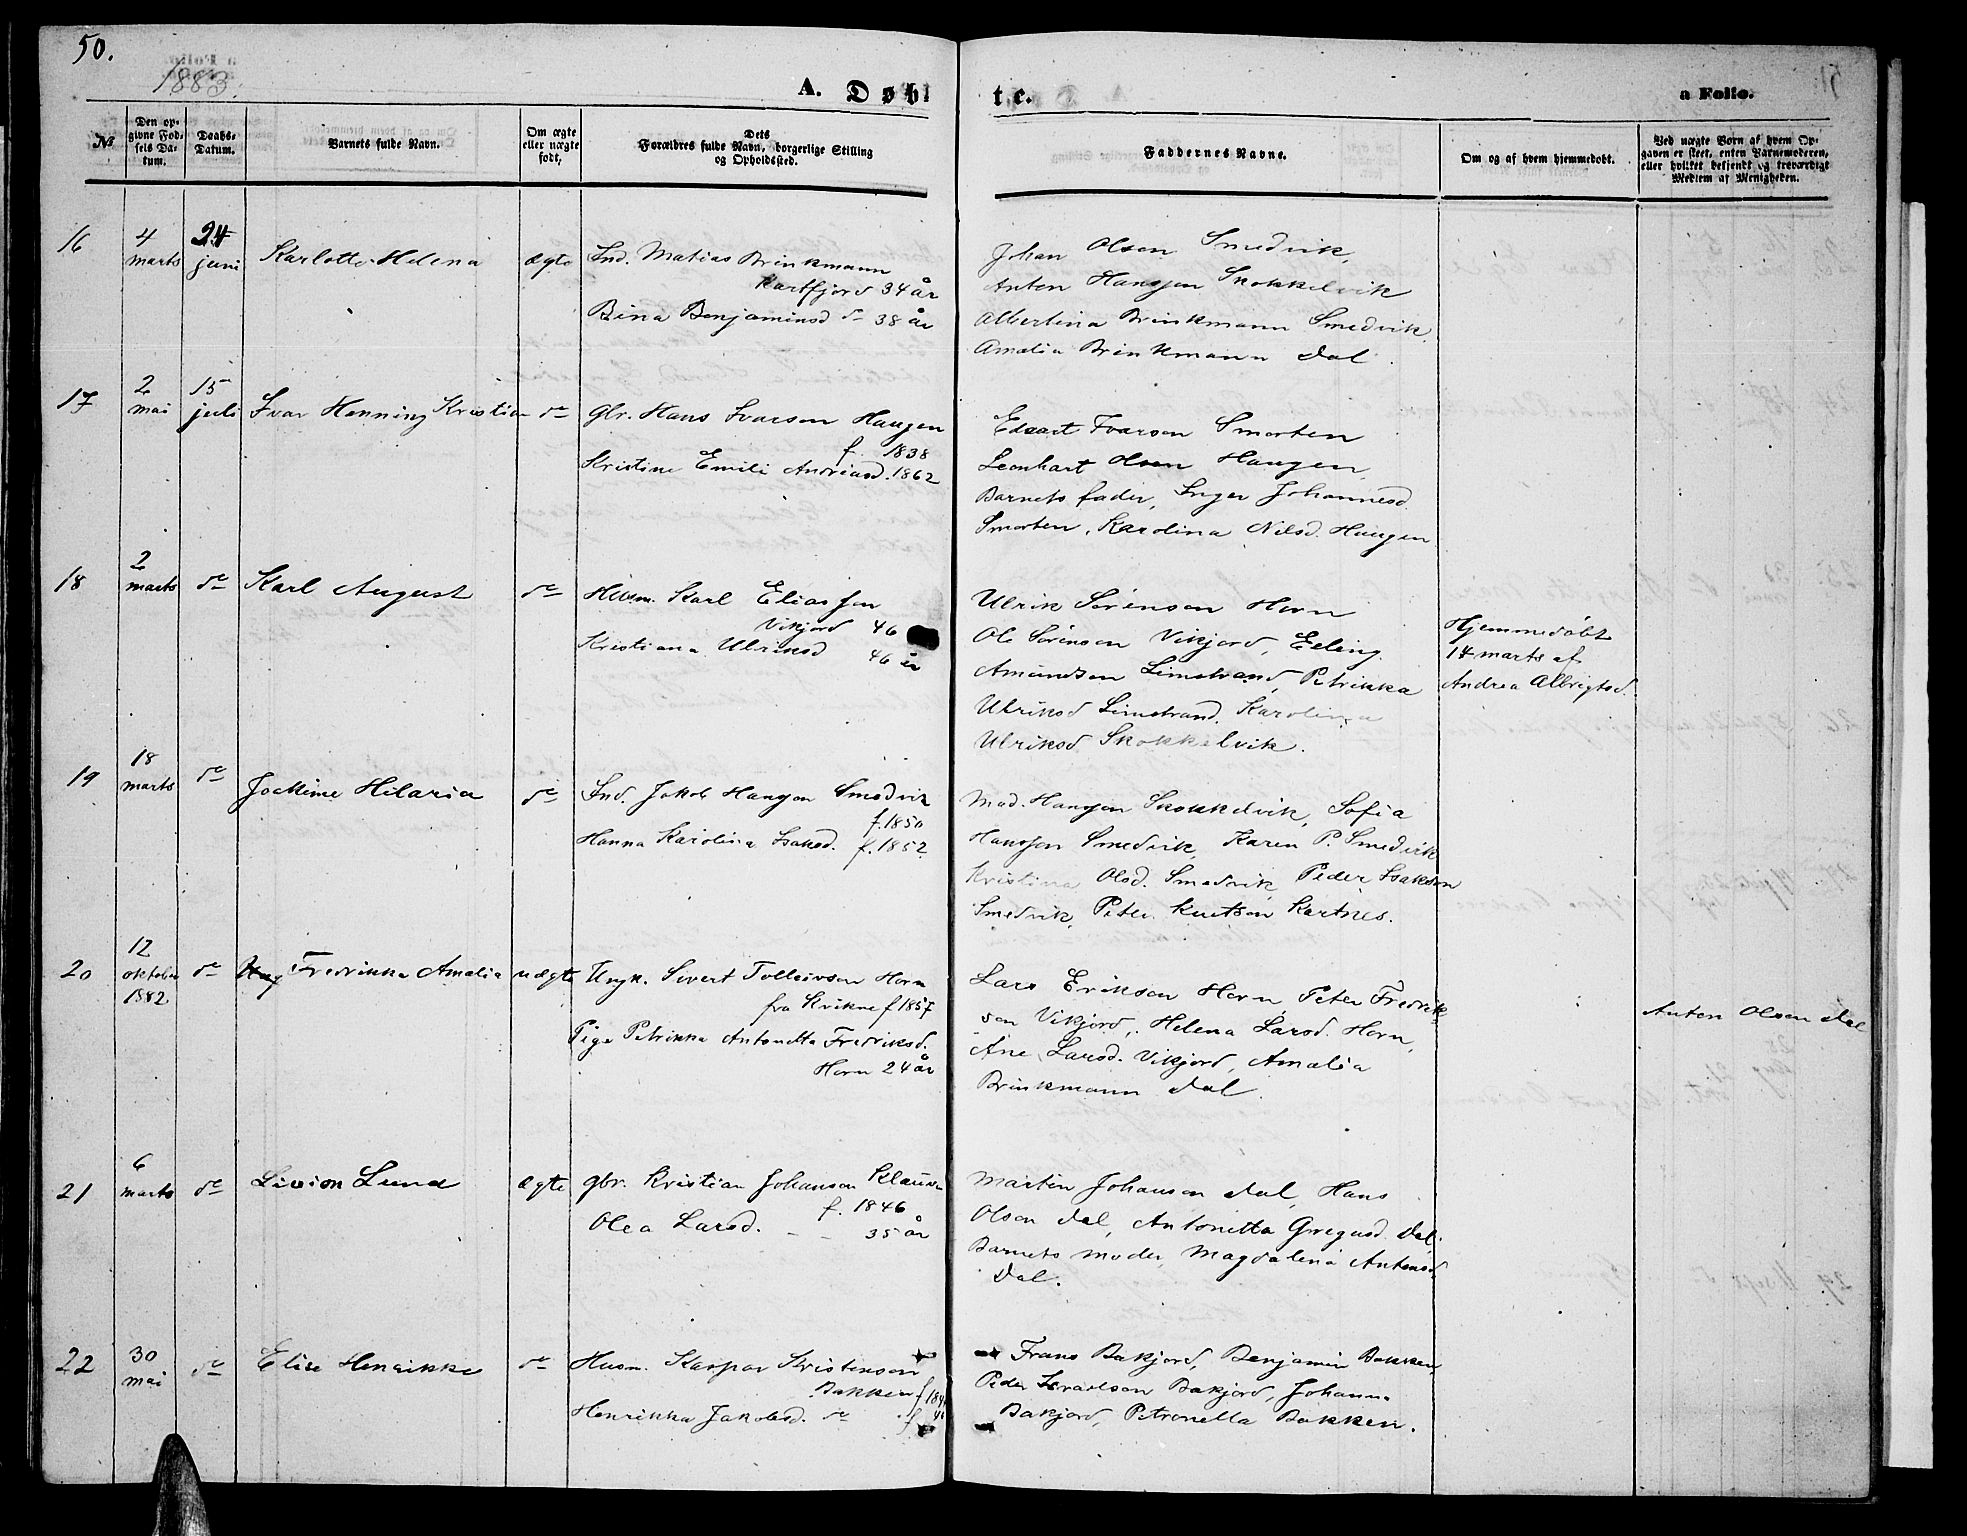 50.
1883.
A. Døbl
te.
a Folio.
№
Den op-
givne Fød-
sels Da-
tum.
Daabs-
Datum.
Barnets fulde Navn.
Om ægte
eller uægte
født,
Dets
Forældres fulde Navn, borgerlige Stilling
og Opholdssted.
Faddernes Navne.
Om og af hvem hjemmedøbt.
Ved uægte Børn af hvem Op-
gaven er skeet, enten Barnemoderen,
eller hvilket bekjendt og troværdigt
Medlem af Menigheden.
16
4
marts
24
juni
Karlotte Helena
ægte
Ind. Matias Brinkmann
Kartfjord 34 år
Bina Benjaminsd do 38 år
Johan Olsen Smedvik,
Anton Hansen Skokkelvik
Albertina Brinkmann Smedvik,
Amalia Brinkmann Dal.
17
2
mai
15
juli
Ivar Henning Kristian
do
gbr. Hans Ivarsen Haugen
f. 1838
Kristine Emili Andreasd. 1862
Edvart Ivarson Smorten
Leonhart Olsen Haugen,
Barnets fader, Inger Johannesd.
Smorten, Karolina Nilsd. Haugen
18
2
marts
do
Karl August
do
Husm. Karl Eliassen
Vikjord 46
Kristiana Ulriksd 46 år
Ulrik Sørensen Horn
Ole Sørensen Vikjord, Elling
Amundsen Limstrand, Petrikka
Ulriksd Limstrand. Karolina
Ulriksd Skokkelvik.
Hjemmedøbt
14 marts af
Andrea Albrigtsd.
19
18
marts
do
Jockime Hilaria
do
Ind. Jakob Hansen Smedvik
f. 1850
Hanna Karolina Isaksd. f. 1852
Mad. Hansen Skokkelvik, Sofia
Hanssen Smedvik, Karen P. Smedvik
Kristina Olsd. Smedvik, Peder Isaksen
Smedvik, Peter Knutson Kartnes.
20
12
oktober
1882
do
Fredrikka Amalia
uægte
Ungk. Sivert Tolleivson Horn
fra Kvikne f 1857
Pige Petrikka Antonetta Fredriksd.
Horn 24 år
Lars Erikson Horn Peter Fredrik-
sen Vikjord, Helena Larsd. Horn,
Ane Larsd. Vikjord, Amalia
Brinkmann Dal.
Anton Olsen Dal
21
6
marts
do
Livion Lund
ægte
gbr. Kristian Johanson Klauven
f. 1846
Olea Larsd. - - 35 år
Martin Johanson Dal, Hans
Olson Dal, Antonetta Gregusd. Dal,
Barnets moder, Magdalena Antonsd.
Dal.
22
30
mai
do
Elise Henrikke
do
Husm. Kaspar Kristenson
Bakken f 184
Henrikka Jakobsd. do f. 4
Frans Bakjord, Benjamin Bakken,
Peder Israelson Bakjord, Johanna
Bakjord, Petronella Bakken.